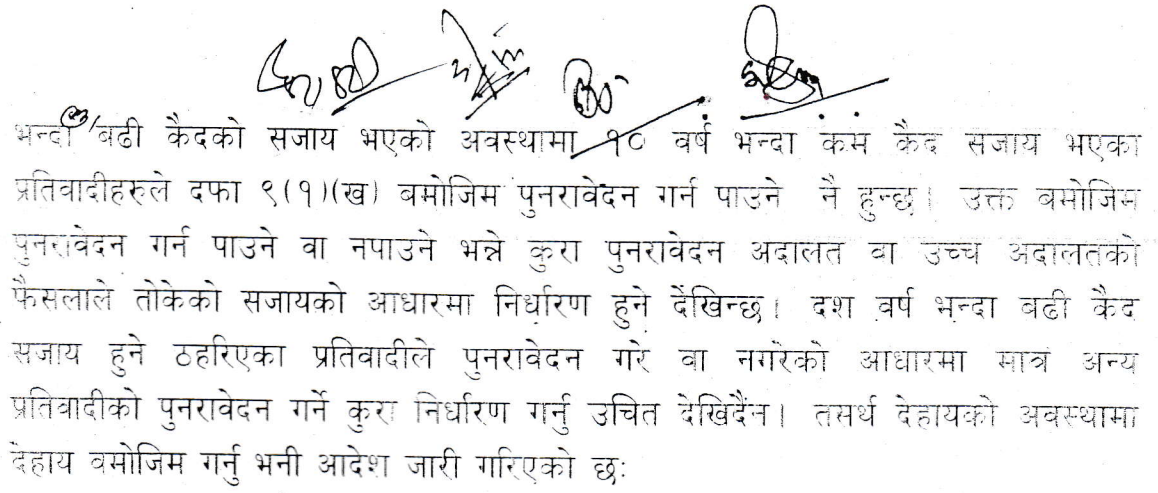 भन्दा बढी कैदको सजाय भएको अवस्थामा १० वर्ष भन्दा कम कैद सजाय भएका
प्रतिवादीहरुले दफा ९(१)(ख) बमोजिम पुनरावेदन गर्न पाउने नै हुन्छ। उक्त बमोजिम
पुनरावेदन गर्न पाउने वा नपाउने भन्ने कुरा पुनरावेदन अदालत वा उच्च अदालतको
फैसलाले तोकेको सजायको आधारमा निर्धारण हुने देखिन्छ। दश वर्ष भन्दा बढी कैद
सजाय हुने ठहरिएका प्रतिवादीले पुनरावेदन गरे वा नगरेको आधारमा मात्र अन्य
प्रतिवादीको पुनरावेदन गर्ने कुरा निर्धारण गर्नु उचित देखिदैन। तसर्थ देहायको अवस्थामा
देहाय वमोजिम गर्नु भनी आदेश जारी गरिएको छः